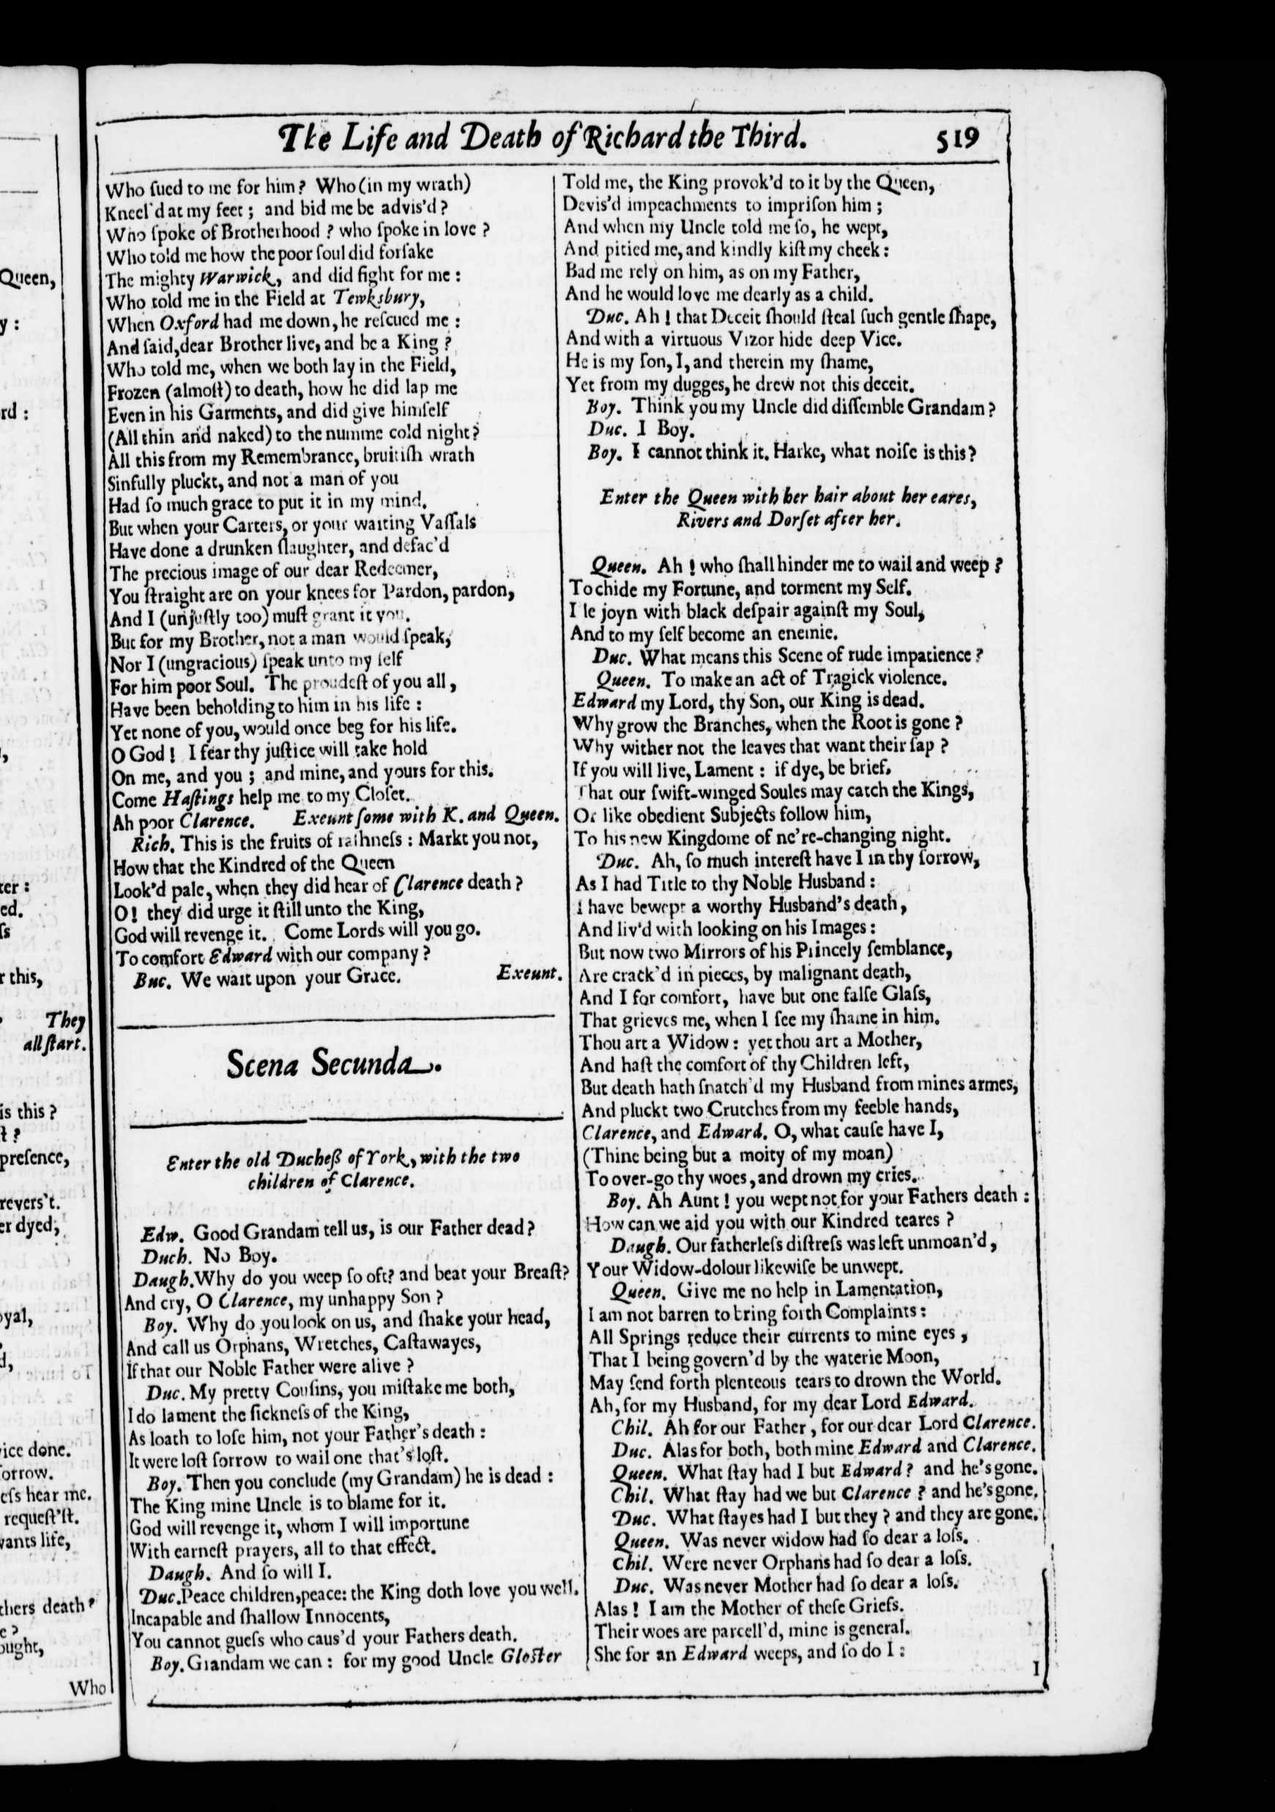 The Life and Death of Richard the Third. 519
Who ſued to me for him? Who (in my wrath)
Kneel'd at my feet; and bid me be advis'd?
Who ſpoke of Brotherhood? who ſpoke in love?
Who told me how the poor ſoul did forſake
The mighty Warwick, and did fight for me:
Who told me in the Field at Tewksbury,
When Oxford had me down, he reſcued me:
And ſaid, dear Brother live, and be a King?
Who told me, when we both lay in the Field,
Frozen (almoſt) to death, how he did lap me
Even in his Garments, and did give himſelf
(All thin and naked) to the numme cold night?
All this from my Remembrance, bruitiſh wrath
Sinfully pluckt, and not a man of you
Had ſo much grace to put it in my mind.
But when your Carters, or your waiting Vaſſals
Have done a drunken ſlaughter, and defac'd
The precious image of our dear Redeemer,
You ſtraight are on your knees for Pardon, pardon,
And I (unjuſtly too) muſt grant it you.
But for my Brother, not a man would ſpeak,
Nor I (ungracious) ſpeak unto my ſelf
For him poor Soul. The proudeſt of you all,
Have been beholding to him in his life:
Yet none of you, would once beg for his life.
O God! I fear thy juſtice will take hold
On me, and you; and mine, and yours for this.
Come Haſtings help me to my Cloſet.
Ah poor Clarence. Exeunt ſome with K. and Queen.
Rich. This is the fruits of raſhneſs: Markt you not,
How that the Kindred of the Queen
Look'd pale, when they did hear of Clarence death?
O! they did urge it ſtill unto the King,
God will revenge it. Come Lords will you go.
To comfort Edward with our company?
Buc. We wait upon your Grace. Exeunt.
Scena Secunda.
Enter the old Ducheß of York, with the two
children of Clarence.
Edw. Good Grandam tell us, is our Father dead?
Duch. No Boy.
Daugh. Why do you weep ſo oft? and beat your Breaſt?
And cry, O Clarence, my unhappy Son?
Boy. Why do you look on us, and ſhake your head,
And call us Orphans, Wretches, Caſtawayes,
If that our Noble Father were alive?
Duc. My pretty Couſins, you miſtake me both,
I do lament the ſickneſs of the King,
As loath to loſe him, not your Father's death:
It were loſt ſorrow to wail one that's loſt.
Boy. Then you conclude (my Grandam) he is dead:
The King mine Uncle is to blame for it.
God will revenge it, whom I will importune
With earneſt prayers, all to that effect.
Daugh. And ſo will I.
Duc. Peace children, peace: the King doth love you well.
Incapable and ſhallow Innocents,
You cannot gueſs who caus'd your Fathers death.
Boy. Grandam we can: for my good Uncle Gloſter
Told me, the King provok'd to it by the Queen,
Devis'd impeachments to impriſon him;
And when my Uncle told me ſo, he wept,
And pitied me, and kindly kiſt my cheek:
Bad me rely on him, as on my Father,
And he would love me dearly as a child.
Duc. Ah! that Deceit ſhould ſteal ſuch gentle ſhape,
And with a virtuous Vizor hide deep Vice.
He is my ſon, I, and therein my ſhame,
Yet from my dugges, he drew not this deceit.
Boy. Think you my Uncle did diſſemble Grandam?
Duc. I Boy.
Boy. I cannot think it. Harke, what noiſe is this?
Enter the Queen with her hair about her eares,
Rivers and Dorſet after her.
Queen. Ah! who ſhall hinder me to wail and weep?
To chide my Fortune, and torment my Self.
I le joyn with black deſpair againſt my Soul,
And to my ſelf become an enemie.
Duc. What means this Scene of rude impatience?
Queen. To make an act of Tragick violence.
Edward my Lord, thy Son, our King is dead.
Why grow the Branches, when the Root is gone?
Why wither not the leaves that want their ſap?
If you will live, Lament: if dye, be brief.
That our ſwift-winged Soules may catch the Kings,
Or like obedient Subjects follow him,
To his new Kingdome of ne're-changing night.
Duc. Ah, ſo much intereſt have I in thy ſorrow,
As I had Title to thy Noble Husband:
I have bewept a worthy Husband's death,
And liv'd with looking on his Images:
But now two Mirrors of his Princely ſemblance,
Are crack'd in pieces, by malignant death,
And I for comfort, have but one falſe Glaſs,
That grieves me, when I ſee my ſhame in him.
Thou art a Widow: yet thou art a Mother,
And haſt the comfort of thy Children left,
But death hath ſnatch'd my Husband from mines armes,
And pluckt two Crutches from my feeble hands,
Clarence, and Edward. O, what cauſe have I,
(Thine being but a moity of my moan)
To over-go thy woes, and drown my cries.
Boy. Ah Aunt! you wept not for your Fathers death:
How can we aid you with our Kindred teares?
Daugh. Our fatherleſs diſtreſs was left unmoan'd,
Your Widow-dolour likewiſe be unwept.
Queen. Give me no help in Lamentation,
I am not barren to bring forth Complaints:
All Springs reduce their currents to mine eyes,
That I being govern'd by the waterie Moon,
May ſend forth plenteous tears to drown the World.
Ah, for my Husband, for my dear Lord Edward.
Chil. Ah for our Father, for our dear Lord Clarence.
Duc. Alas for both, both mine Edward and Clarence.
Queen. What ſtay had I but Edward? and he's gone.
Chil. What ſtay had we but Clarence? and he's gone.
Duc. What ſtayes had I but they? and they are gone.
Queen. Was never widow had ſo dear a loſs.
Chil. Were never Orphans had ſo dear a loſs.
Duc. Was never Mother had ſo dear a loſs.
Alas! I am the Mother of theſe Griefs.
Their woes are parcell'd, mine is general.
She for an Edward weeps, and ſo do I:
I
Queen,
y:
rd:
ter:
ed.
ſs
r this,
They
all ſtart.
is this?
t?
preſence,
revers't.
er dyed;
oyal,
d,
vice done.
orrow.
eſs hear me.
requeſt'ſt.
vants life,
thers death?
e?
ought,
Who